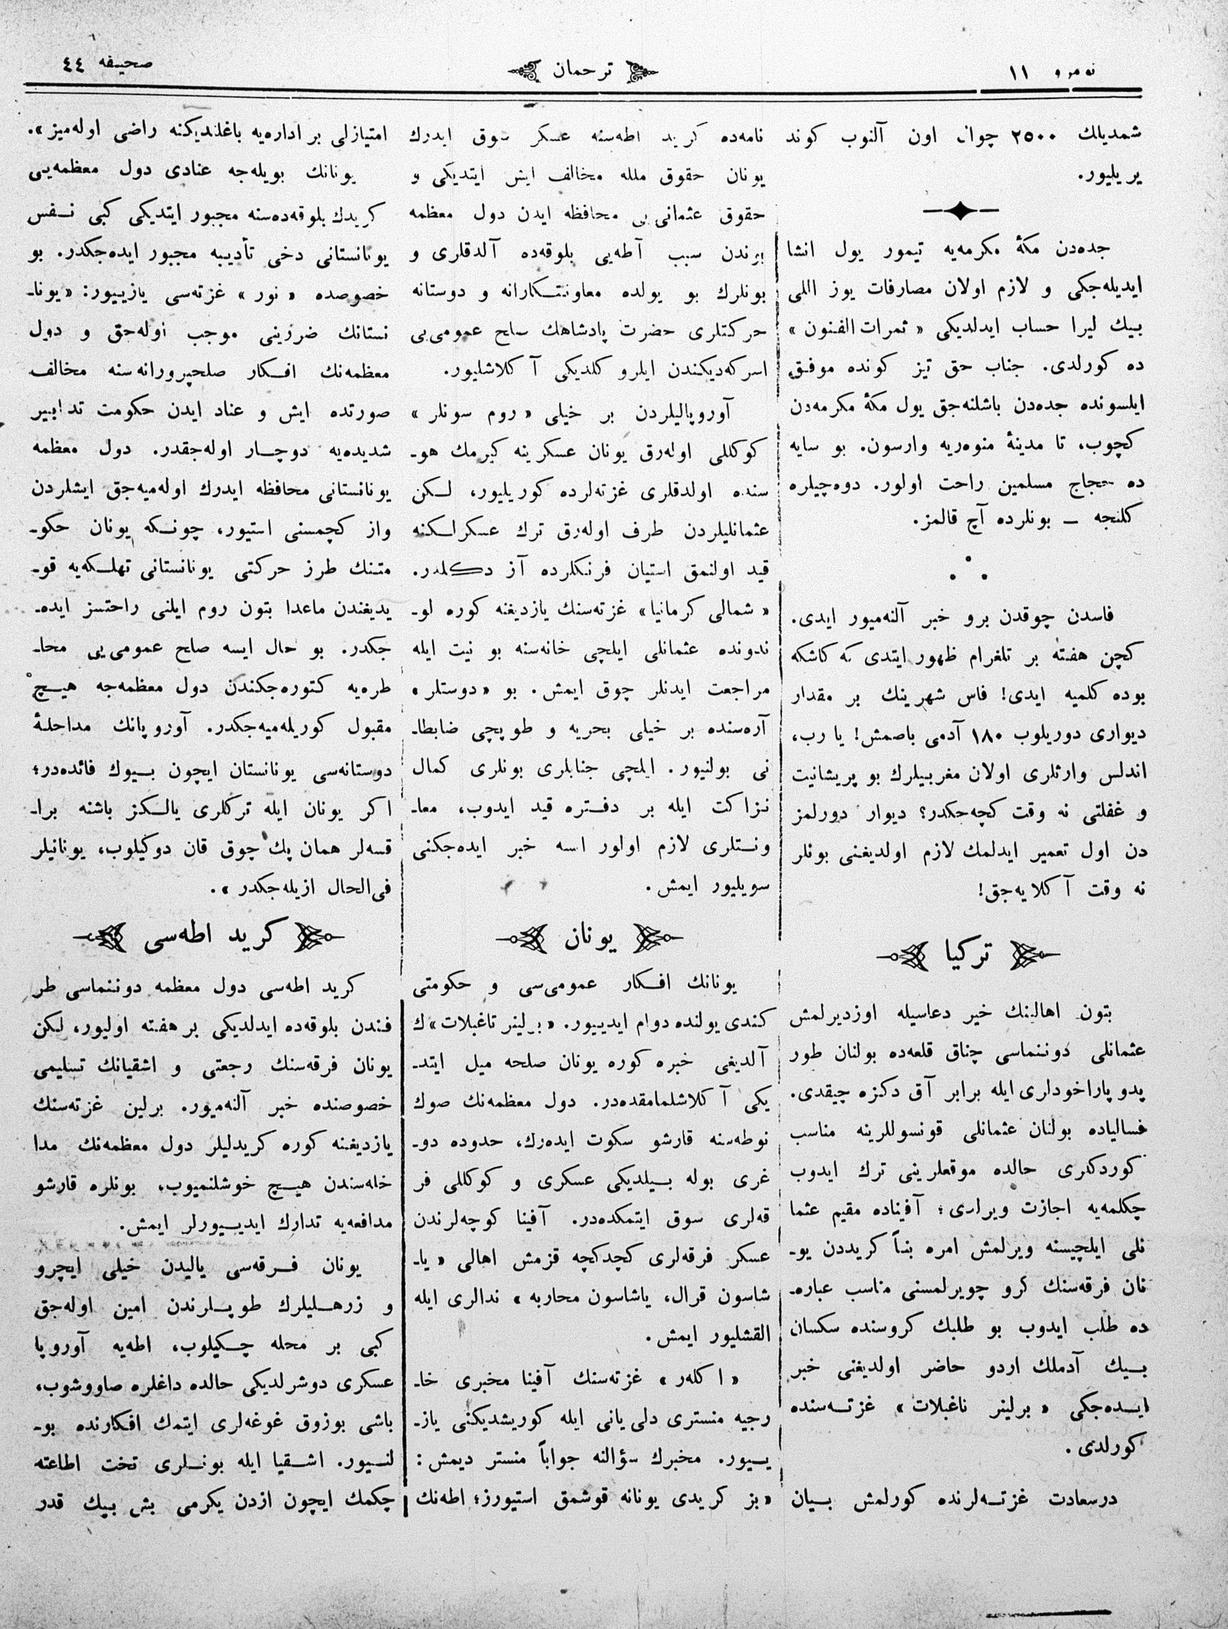 نه‌مرو ١١
ترجمان
صحیفه ٤٤
شمدیلك ٢٥٠٠ چوال اون آلنوب کوند
یریلیور.
جده‌دن مکهٔ مکرمه‌یه تیمور یول انشا
ایدیله‌جکی و لازم اولان مصارفات یوز اللی
بیك لیرا حساب ایدلدیکی « ثمرات الفنون »
ده کورلدی. جناب حق تیز کونده موفق
ایلسونده جده‌دن باشلنه‌جق یول مکهٔ مکرمه‌دن
کچوب، تا مدینهٔ منوه‌ریه وارسون. بو سایه
ده حجاج مسلمین راحت اولور. دوه‌چیلره
کلنجه ــ بونلرده آچ قالمز.
فاسدن چوقدن برو خبر آلنه‌میور ایدی.
کچن هفته بر تلغرام ظهور ایتدی که کاشکه
بوده کلمیه ایدی! فاس شهرینك بر مقدار
دیواری دوریلوب ١٨٠ آدمی باصمش! یا رب،
اندلس وارثلری اولان مغربیلرك بو پریشانیت
و غفلتی نه وقت کچه‌جکدر؟ دیوار دورلمز
دن اول تعمیر ایدلمك لازم اولدیغنی بونلر
نه وقت آکلایه‌جق!
ترکیا
بتون اهالینك خیر دعاسیله اوزدیرلمش
عثمانلی دونماسی چناق قلعه‌ده بولنان طور
پدو پاراخوداری ایله برابر آق دکزه چیقدی.
فسالیاده بولنان عثمانلی قونسوللرینه مناسب
کوردکلری حالده موقعلرینی ترك ایدوب
چکلمه‌یه اجازت ویرلدی؛ آفیناده مقیم عثما
نلی ایلچیسنه ویرلمش امره بناً کریددن یو-
نان فرقه‌سنك کرو چویرلمسنی مناسب عباره-
ده طلب ایدوب بو طلبك کروسنده سکسان
بیك آدملك اردو حاضر اولدیغنی خبر
ایده‌جکی « برلینر تاغبلات » غزته‌سنده
کورلدی.
درسعادت غزته‌لرنده کورلمش بیان
نامه‌ده کرید اطه‌سنه عسکر سوق ایدرك
یونان حقوق ملله مخالف ایش ایتدیکی و
حقوق عثمانی‌یی محافظه ایدن دول معظمه
بوندن سبب آطه‌یی بلوقه‌ده آلدقلری و
بونلرك بو یولده معاونتکارانه و دوستانه
حرکتلری حضرت پادشاهك صلح عمومی‌یی
اسرکه‌دیکندن ایلرو کلدیکی آکلاشلیور.
آوروپالیلردن بر خیلی « روم سونلر »
کوکللی اوله‌رق یونان عسکرینه کیرمك هو-
سنده اولدقلری غزته‌لرده کوریلیور، لکن
عثمانلیلردن طرف اوله‌رق ترك عسکرلکنه
قید اولنمق استیان فرنکلرده آز دکلدر.
« شمالی کرمانیا » غزته‌سنك یازدیغنه کوره لو-
ندونده عثمانلی ایلچی خانه‌سنه بو نیت ایله
مراجعت ایدنلر چوق ایمش. بو « دوستلر »
آره‌سنده بر خیلی بحریه و طوپچی ضابطا-
نی بولنیور. ایلچی جنابلری بونلری کمال
نزاکت ایله بر دفتره قید ایدوب، معا-
ونتلری لازم اولور اسه خبر ایده‌جکنی
سویلیور ایمش.
یونان
یونانك افکار عمومی‌سی و حکومتی
کندی یولنده دوام ایدییور. « برلینر تاغبلات » ك
آلدیغی خبره کوره یونان صلحه میل ایتد-
یکی آکلاشلمامقده‌در. دول معظمه‌نك صوك
نوطه‌سنه قارشو سکوت ایده‌رك، حدوده دو-
غری بوله بیلدیکی عسکری و کوکللی فر
قه‌لری سوق ایتمکده‌در. آفینا کوچه‌لرندن
عسکر فرقه‌لری کچدکچه قزمش اهالی « یا-
شاسون قرال، یاشاسون محاربه » ندالری ایله
القشلیور ایمش.
« اکلەر » غزته‌سنك آفینا مخبری خا-
رجیه منستری دلی‌یانی ایله کوریشدیکنی یاز-
ییور. مخبرك سؤالنه جواباً منستر دیمش :
« بز کریدی یونانه قوشمق استیورز؛ اطه‌نك
امتیازلی بر اداره‌یه باغلندیکنه راضی اوله‌میز ».
یونانك بویله‌جه عنادی دول معظمه‌یی
کریدك بلوقه‌ده‌سنه مجبور ایتدیکی کبی نفس
یونانستانی دخی تأدیبه مجبور ایده‌جکدر. بو
خصوصده « نور » غزته‌سی یازییور: « یونا-
نستانك ضررینی موجب اوله‌جق و دول
معظمه‌نك افکار صلحپرورانه‌سنه مخالف
صورتده ایش و عناد ایدن حکومت تدابیر
شدیده‌یه دوچار اوله‌جقدر. دول معظمه
یونانستانی محافظه ایدرك اوله‌میه‌جق ایشلردن
واز کچمسنی استیور، چونکه یونان حکو-
متنك طرز حرکتی یونانستانی تهلکه‌یه قو-
یدیغندن ماعدا بتون روم ایلنی راحتسز ایده-
جکدر. بو حال ایسه صلح عمومی‌یی مخا-
طره‌یه کتوره‌جکندن دول معظمه‌جه هیچ
مقبول کوریله‌میه‌جکدر. آوروپانك مداخلهٔ
دوستانه‌سی یونانستان ایچون بیوك فائده‌در؛
اکر یونان ایله ترکلری یالکز باشنه برا-
قسه‌لر همان پك چوق قان دوکیلوب، یونانیلر
فی‌الحال ازیله‌جکدر ».
کرید اطه‌سی
کرید اطه‌سی دول معظمه دونماسی طر
فندن بلوقه‌ده ایدلدیکی بر هفته اولیور، لیکن
یونان فرقه‌سنك رجعتی و اشقیانك تسلیمی
خصوصنده خبر آلنه‌میور. برلین غزته‌سنك
یازدیغنه کوره کریدلیلر دول معظمه‌نك مدا
خله‌سندن هیچ خوشلنمیوب، بونلره قارشو
مدافعه‌یه تدارك ایدییورلر ایمش.
یونان فرقه‌سی یالیدن خیلی ایچرو
و زرهلیلرك طوپلرندن امین اوله‌جق
کبی بر محله چکیلوب، اطه‌یه آوروپا
عسکری دوشرلدیکی حالده داغلره صاووشوب،
باشی بوزوق غوغه‌لری ایتمك افکارنده بو-
لنیور. اشقیا ایله بونلری تخت اطاعته
چکمك ایچون ازدن یکرمی بش بیك قدر